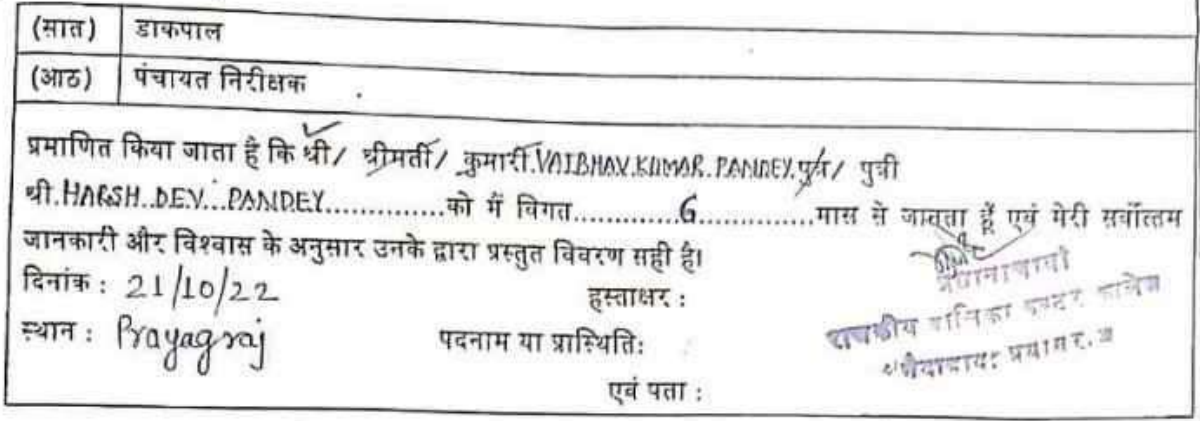 (सात) डाकपाल
(आठ) पंचायत निरीक्षक
प्रमाणित किया जाता है कि श्री/ श्रीमती/ कुमारी.VAIBHAV.KUMAR.PANDEY.पुत्र/ पुत्री
श्री.HARSH.DEV...PANDEY..............को मैं विगत.............6..............मास से जानता हूँ एवं मेरी सर्वोत्तम
जानकारी और विश्वास के अनुसार उनके द्वारा प्रस्तुत विवरण सही है।
दिनांक : 21/10/22 हस्ताक्षर :
प्रधानाचार्या
स्थान : Prayagraj पदनाम या प्रास्थिति:
राजकीय बालिका इण्टर कालेज
एवं पता :